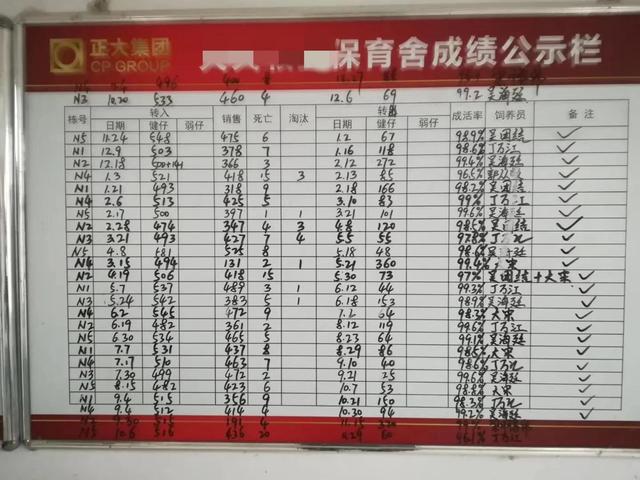 正大集团
CP GROUP
保育舍成绩公示栏
N3 10.20 533 460 4 12.6 69 99.2
栋号 转入 销售 死亡 淘汰 转出 成活率 饲养员 备注
日期 健仔 弱仔 日期 健仔 弱仔
N5 11.24 548 475 6 1.2 67 98.9% 吴团结 ✓
N1 12.9 503 378 7 1.16 118 98.6% 丁万江 ✓
N2 12.18 500+141 366 3 2.12 272 99.4% 吴海廷 ✓
N4 1.3 521 418 15 3 2.13 85 96.5% ✓
N1 1.21 493 318 9 2.18 166 98.2% 吴团结 ✓
N4 2.6 513 425 5 3.10 83 99% 丁万江 ✓
N5 2.17 500 397 1 1 3.21 101 99.6% 吴海廷 ✓
N2 2.28 474 347 4 3 4.8 120 98.5% 吴 结 ✓
N3 3.21 493 427 7 4 5.5 55 97.8% 丁万 ✓
N5 4.8 581 525 8 5.18 48 98.6% ✓
N4 3.15 494 131 2 1 5.21 360 99.4% 宋 ✓
N2 4.19 506 418 15 5.30 73 97% 吴团结+大宋 ✓
N1 5.7 537 489 3 1 6.12 44 99.3% 丁万江 ✓
N3 5.24 542 383 5 1 6.18 153 98.9% 吴海廷 ✓
N4 6.2 545 472 9 7.2 64 98.3% 大宋 ✓
N2 6.19 482 361 2 8.12 119 99.6% 丁万江 ✓
N5 6.30 534 465 5 8.23 64 99.1% 吴海廷 ✓
N1 7.7 531 437 8 8.29 86 98.5% 大宋 ✓
N4 7.17 510 463 7 9.10 40 98.6% 丁万江 ✓
N3 7.30 499 472 2 9.21 25 99.6% 吴海廷 ✓
N5 8.15 482 423 6 10.7 53 98.8% 大宋 ✓
N1 9.4 515 356 9 10.21 150 98.3% 丁万江 ✓
N4 9.4 512 414 4 10.30 94 99.2% 吴海廷 ✓
9.30 515 191 4 11.15 320
N5 10.6 516 436 20 11.29 60 96.1% 丁万江